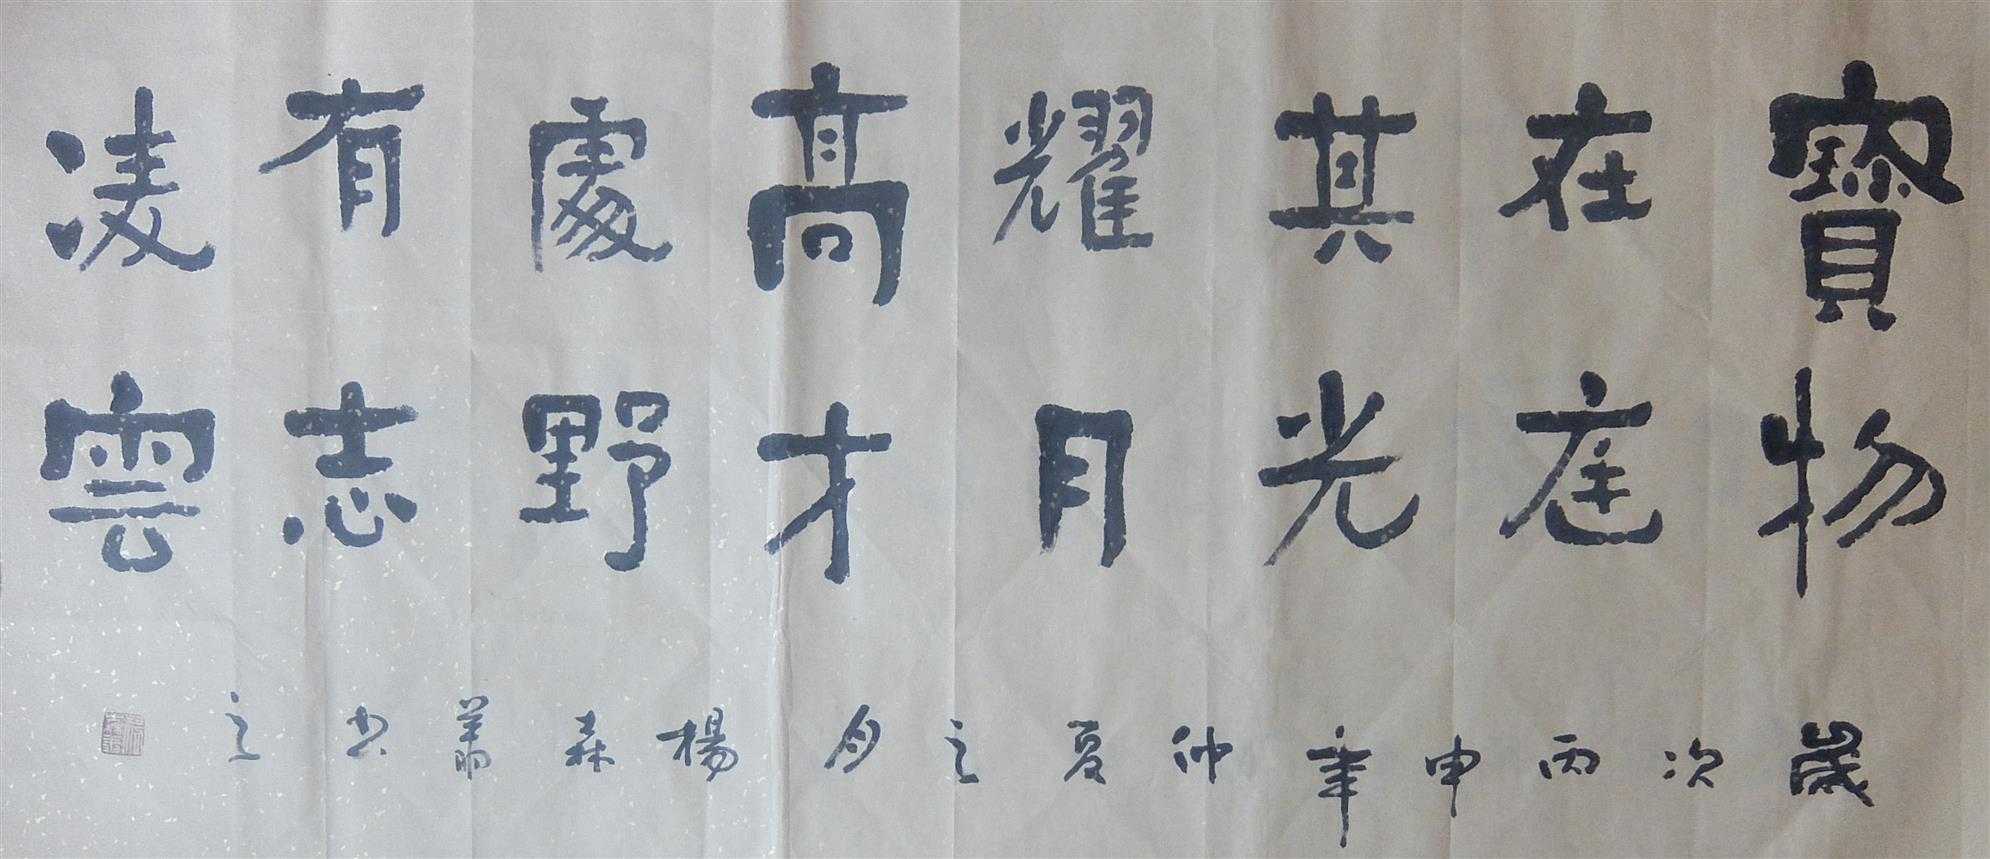 寶物
在庭
其光
耀月
高才
處野
有志
凌雲
歲次丙申年仲夏之月楊森書之